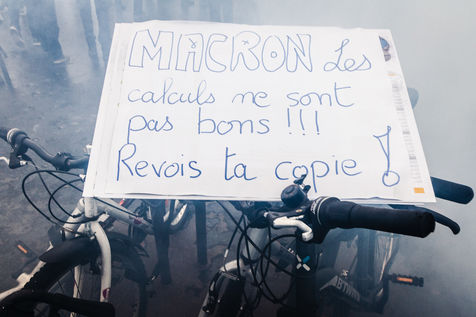 MACRON Les
calculs ne sont
pas bons !!!
Revois ta copie !